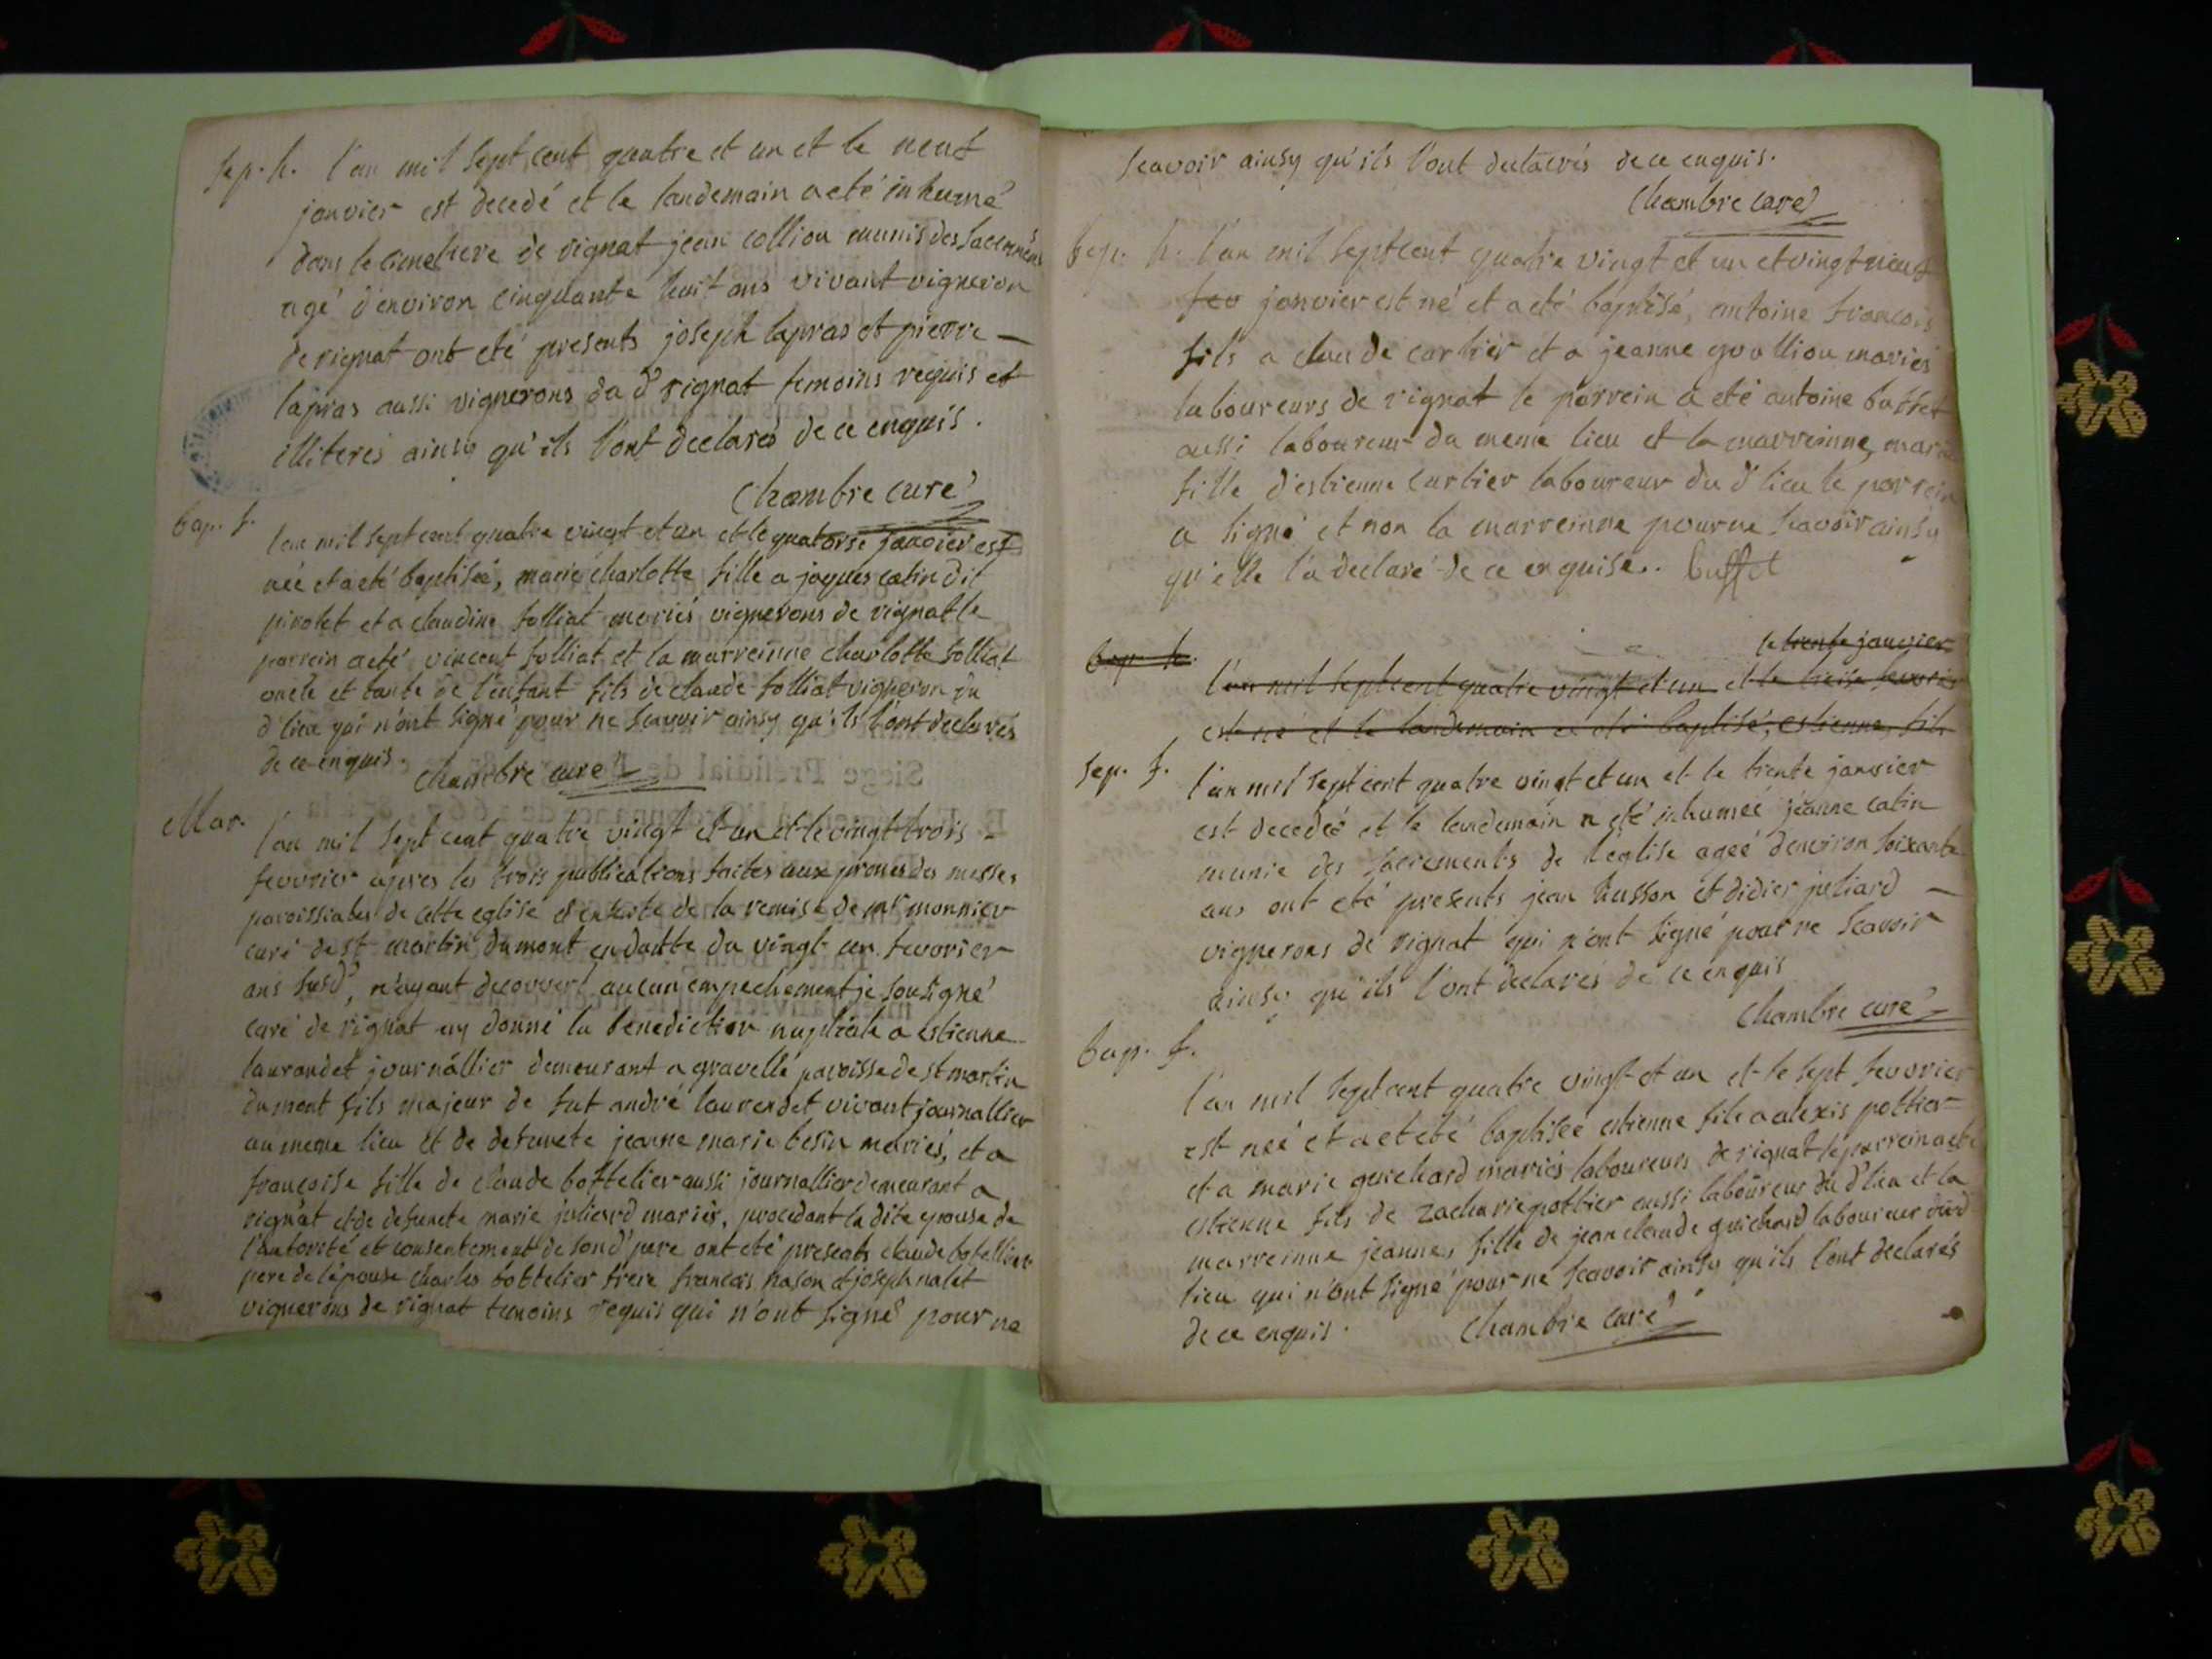 sep. h. l'an mil sept cent quatre et un et le neuf
janvier est decedé et le landemain a eté inhumé
dans le cimetiere de rignat jean collion munis des sacremens
agé d'environ cinquante huit ans vivant vigneron
de rignat ont eté presents joseph lapras et pierre
lapras aussi vignerons du d' rignat temoins requis et
illiterés ainsy qu'ils l'ont declarés de ce enquis.
Chambre curé
bap. f. l'an mil sept cent quatre vingt et un et le quatorse janvier est
née et a eté baptiseé, marie charlotte fille a jaques catin dit
pirolet et a claudine folliat mariés vignerons de rignat le
parrein a eté vincent folliat et la marreinne charlotte folliat
oncle et tante de l'enfant fils de claude folliat vigneron du
d' lieu qui n'ont signé pour ne scavoir ainsy qu'ils l'ont declarés
de ce enquis. Chambre curé
Mar. l'an mil sept cent quatre vingt et un et le vingt trois
fevvrier apres les trois publications faites aux prones des messes
paroissiales de cette eglise et ensuite de la remise de mr monnier
curé de st martin dumont en datte du vingt un fevvrier
ans susd', n'ayant decouvert aucun empechement je sousigné
curé de rignat ay donné la benediction nuptiale a estienne
laurandet journallier demeurant a gravelle paroisse de st martin
dumont fils majeur de fut andré laurendet vivant journallier
au meme lieu et de defuncte jeanne marie besin mariés, et a
francoise fille de claude bottelier aussi journallier demeurant a
rignat et de defuncte marie juliard mariés, procedant la dite epouse de
l'autorité et consentement de sond' pere ont eté presents claude botellier
pere de l'épouse charles bottelier frere francois nason et joseph nalet
vignerons de rignat temoins requis qui n'ont signé pour ne
scavoir ainsy qu'ils l'ont declarés de ce enquis.
Chambre curé
bap. h. l'an mil sept cent quatre vingt et un et vingt neuf
fev janvier est né et a eté baptisé, antoine francois
fils a claude carlier et a jeanne goollion mariés
laboureurs de rignat le parrein a eté antoine buffet
aussi laboureur du meme lieu et la marreinne marie
fille d'estienne carlier laboureur du d' lieu le parrein
a signé et non la marreinne pour ne scavoir ainsy
qu'elle l'a declaré de ce enquise. buffet
le trente janvier
bap. h. l'an mil sept cent quatre vingt et un et le treise fevvrier
est né et le landemain a eté baptisé, estienne fils
sep. f. l'an mil sept cent quatre vingt et un et le trente janvier
est decedeé et le landemain a eté inhumeé jeanne catin
munie des sacrements de l'eglise ageé d'environ soixante
ans ont eté presents jean husson et didier juliard
vignerons de rignat qui n'ont signé pour ne scavoir
ainsy qu'ils l'ont declarés de ce enquis
Chambre curé
bap. f. l'an mil sept cent quatre vingt et un et le sept fevvrier
est neé et a et eté baptisée estienne fille a alexis pottier
et a marie guichard mariés laboureurs de rignat le parrein a eté
estienne fils de zacharie pottier aussi laboureur du d' lieu et la
marreinne jeanne, fille de jean claude guichard laboureur dud'
lieu qui n'ont signé pour ne scavoir ainsy qu'ils l'ont declarés
de ce enquis. Chambre curé